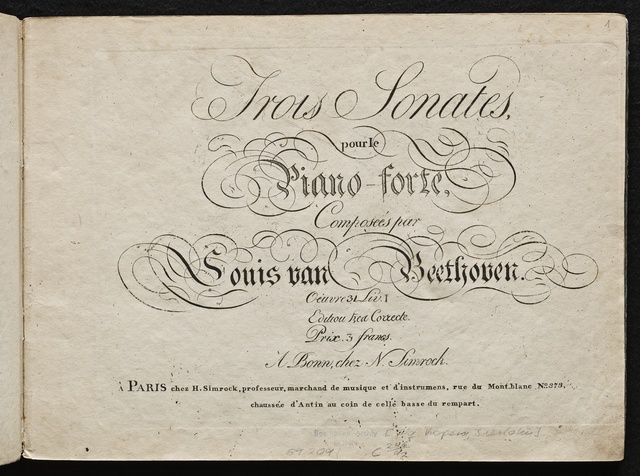 1
Trois Sonates,
pour le
Piano-forte,
Composées par
Louis van Beethoven.
Oeuvre 31 Liv. 1
Editiou tres Correcte.
Prix. 3 francs.
A Bonn, chez N. Simrock.
à PARIS chez H. Simrock, professeur, marchand de musique et d'instrumens, rue du Mont.blanc No. 373,
chaussée d'Antin au coin de celle basse du rempart.